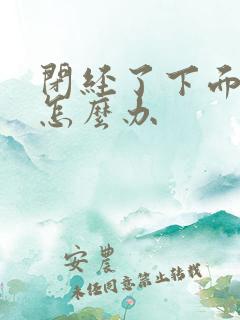 閉経了下而
怎麼办
安農
未经同意禁止转载